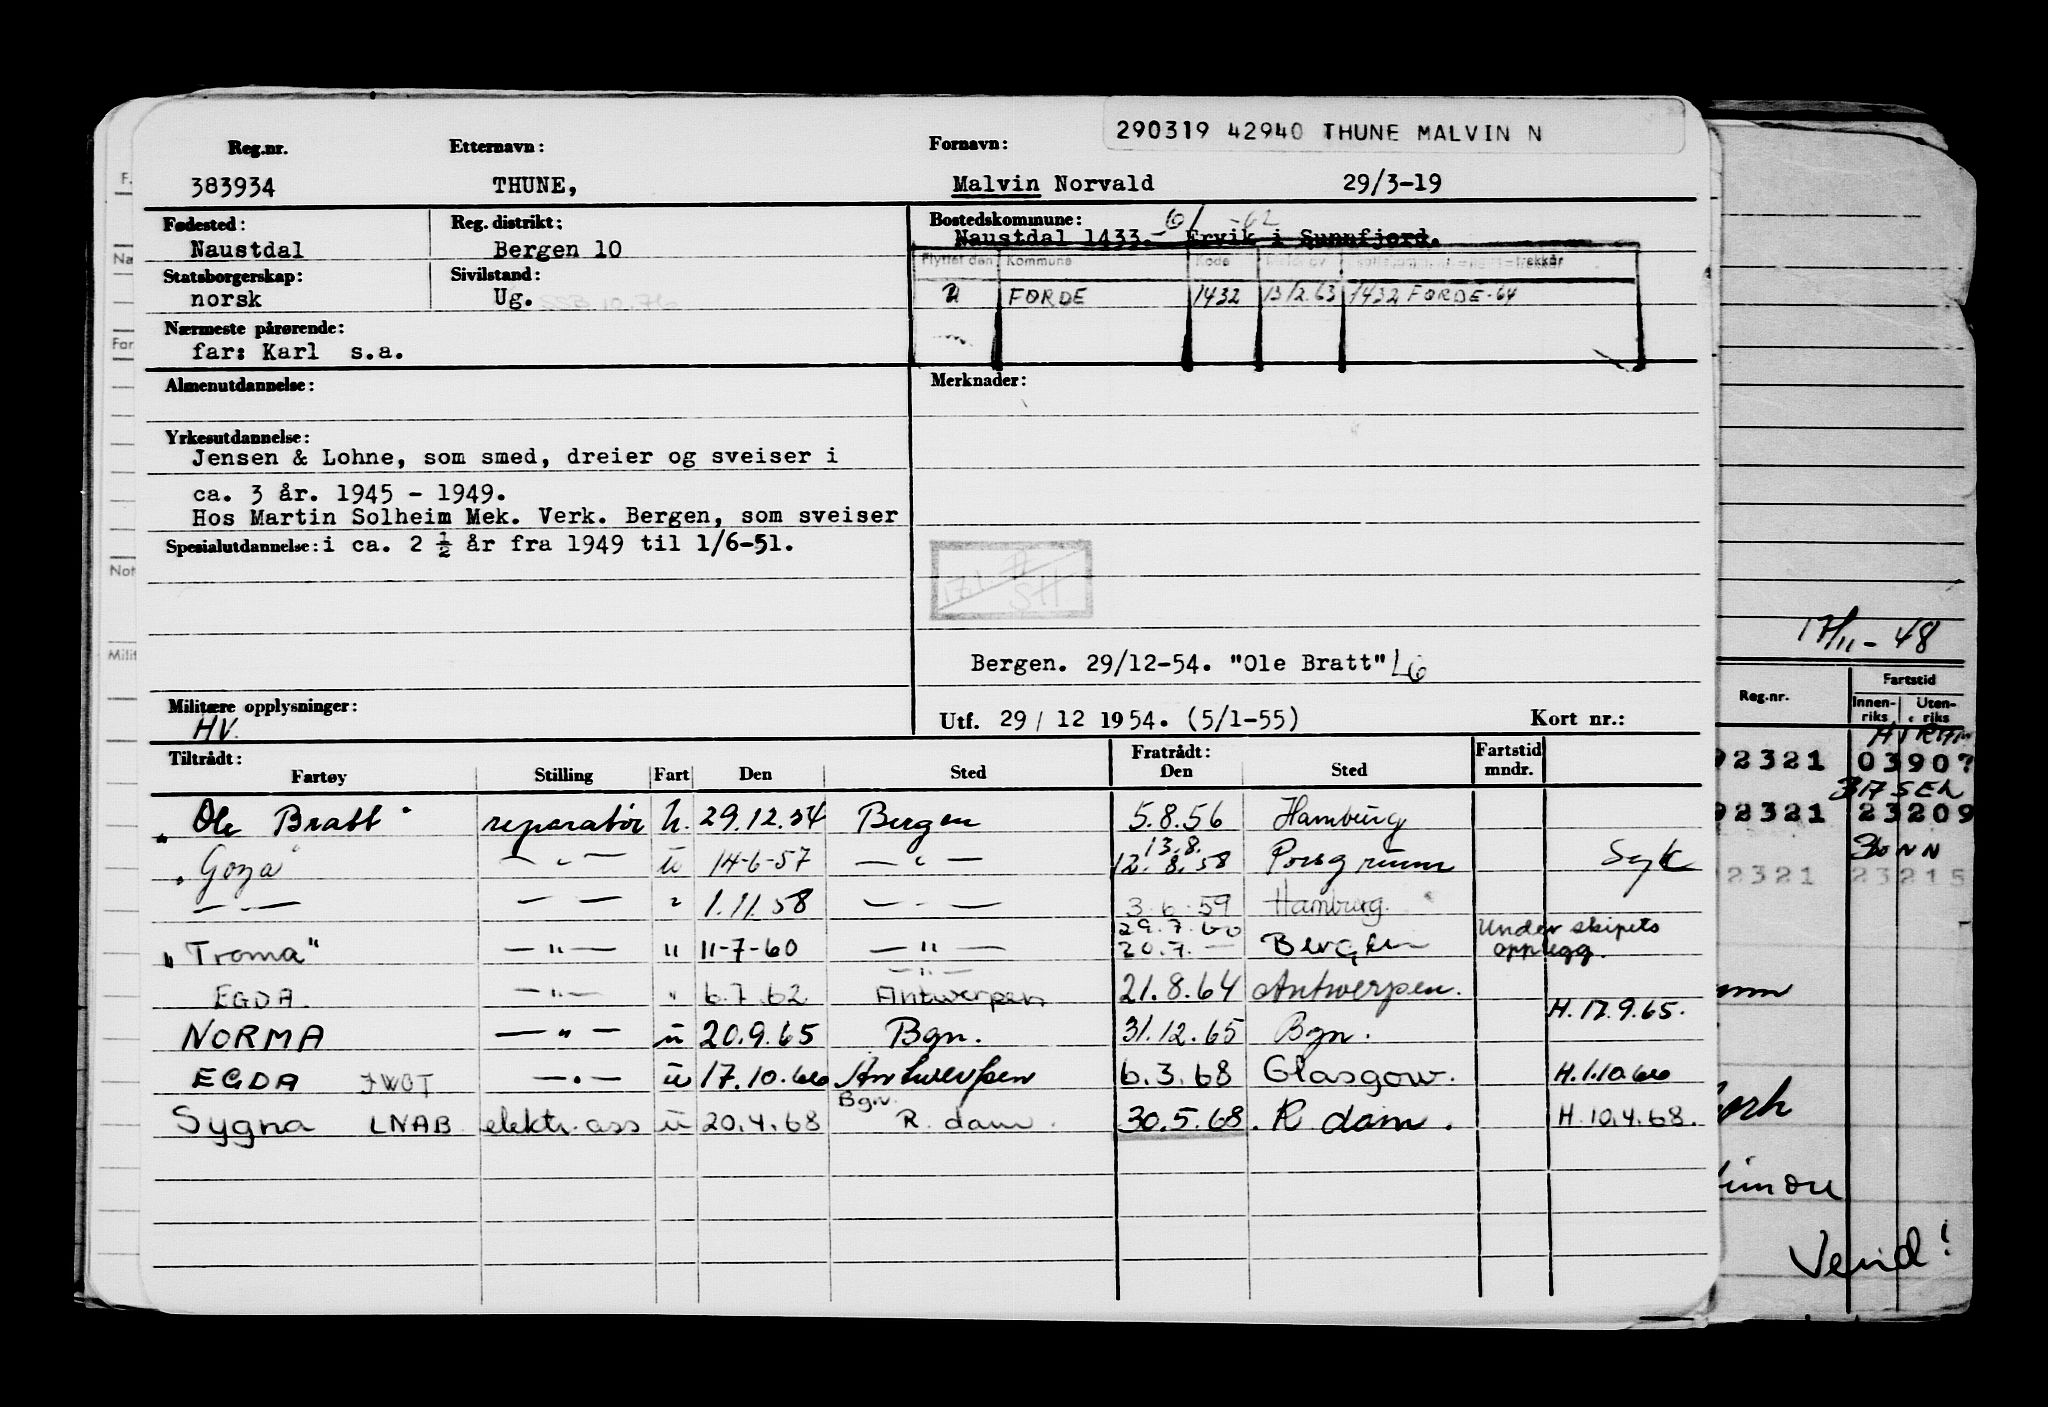 290319 42940 THUNE MALVIN N
Reg.nr. Etternavn: Fornavn:
383934 THUNE, Malvin Norvald 29/3-19
Fødested: Reg. distrikt: Bostedskommune: 61 -62
Naustdal Bergen 10 Naustdal 1433. Ervik i Sunnfjord.
Statsborgerskap: Sivilstand: Flyttet den Kommune Kode
norsk Ug. SSB.10.76 U FØRDE 1432 13/2.63 1432 FØRDE-64
Nærmeste pårørende:
far: Karl s.a.
Almenutdannelse: Merknader:
Yrkesutdannelse:
Jensen & Lohne, som smed, dreier og sveiser i
ca. 3 år. 1945 - 1949.
Hos Martin Solheim Mek. Verk. Bergen, som sveiser
Spesialutdannelse: i ca. 2 ½ år fra 1949 til 1/6-51.
Bergen. 29/12-54. "Ole Bratt" LG
Militære opplysninger:
HV.
Utf. 29/12 1954. (5/1-55) Kort nr.:
Tiltrådt: Fratrådt: Fartstid
Fartøy Stilling Fart Den Sted Den Sted mndr.
"Ole Bratt" reparatør U. 29.12.54 Bergen 5.8.56 Hamburg
13.8.
"Goya" — " — u 14-6-57 — " — 12.8.58 Porsgrunn Syk
— " — — " — " 1.11.58 — " — 3.6.59 Hamburg.
29.7.60 Under skipets
"Troma" — " — " 11-7-60 — " — 20.7. — Bergen opplegg.
— " —
EGDA. — " — " 6.7.62 Antwerpen 21.8.64 Antwerpen.
H. 17.9.65.
NORMA — " — u 20.9.65 Bgn. 31.12.65 Bgn.
EGDA JWOT — " — u 17.10.66 Antwerpen 6.3.68 Glasgow. H.1.10.66
Bgn.
Sygna LNAB elektr. ass u 20.4.68 R. dam. 30.5.68. R dam. H.10.4.68.
17/11-48
Reg.nr. Fartstid
Innen-riks Uten-riks
92321 03907
92321 23209
92321 23215
Vend!